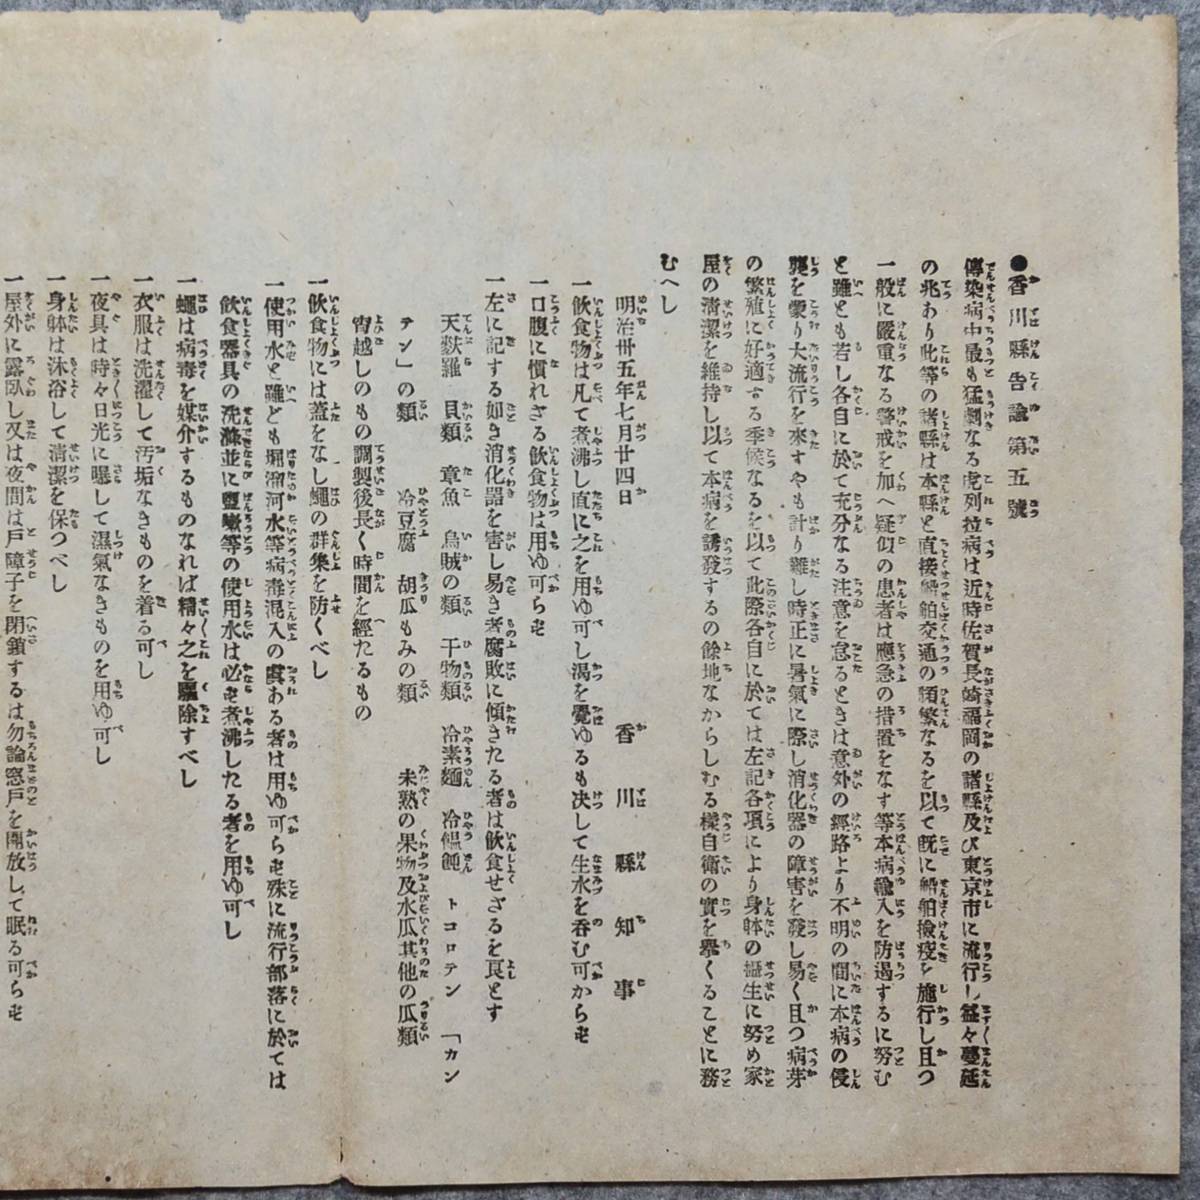 ●香川縣告諭第五號
傳染病中最も猛劇なる虎列拉病は近時佐賀長崎福岡の諸縣及び東京市に流行し益々蔓延
の兆あり此等の諸縣は本縣と直接船舶交通の頻繁なるを以て既に船舶撿疫を施行し且つ
一般に嚴重なる警戒を加へ疑似の患者は應急の措置をなす等本病輸入を防遏するに努む
と雖とも若し各自に於て充分なる注意を怠るときは意外の經路より不明の間に本病の侵
襲を蒙り大流行を來すやも計り難し時正に暑氣に際し消化器の障害を發し易く且つ病芽
の繁殖に好適する季候なるを以て此際各自に於ては左記各項により身躰の攝生に努め家
屋の淸潔を維持し以て本病を誘發するの餘地なからしむる樣自衛の實を擧くることに務
むへし
明治卅五年七月廿四日
香川縣知事
一飲食物は凡て煮沸し直に之を用ゆ可し渴を覺ゆるも决して生水を呑む可からず
一口腹に慣れざる飲食物は用ゆ可らず
一左に記する如き消化器を害し易き者腐敗に傾きたる者は飲食せざるを良とす
天麩羅 貝類 章魚 烏賊の類 干物類 冷素麺 冷饂飩 トコロテン 「カン
テン」の類 冷豆腐 胡瓜もみの類 未熟の果物及水瓜其他の瓜類
宵越しのもの調製後長く時間を經たるもの
一飲食物には蓋をなし蠅の群集を防くべし
一使用水と雖ども堀溜河水等病毒混入の虞ある者は用ゆ可らず殊に流行部落に於ては
飲食器具の洗滌並に盥嗽等の使用水は必ず煮沸したる者を用ゆ可し
一蠅は病毒を媒介するものなれば精々之を驅除すべし
一衣服は洗濯して汚垢なきものを着る可し
一夜具は時々日光に曝して濕氣なきものを用ゆ可し
一身躰は沐浴して淸潔を保つべし
一屋外に露臥し又は夜間は戸障子を閉鎖するは勿論窓戸を開放して眠る可らず